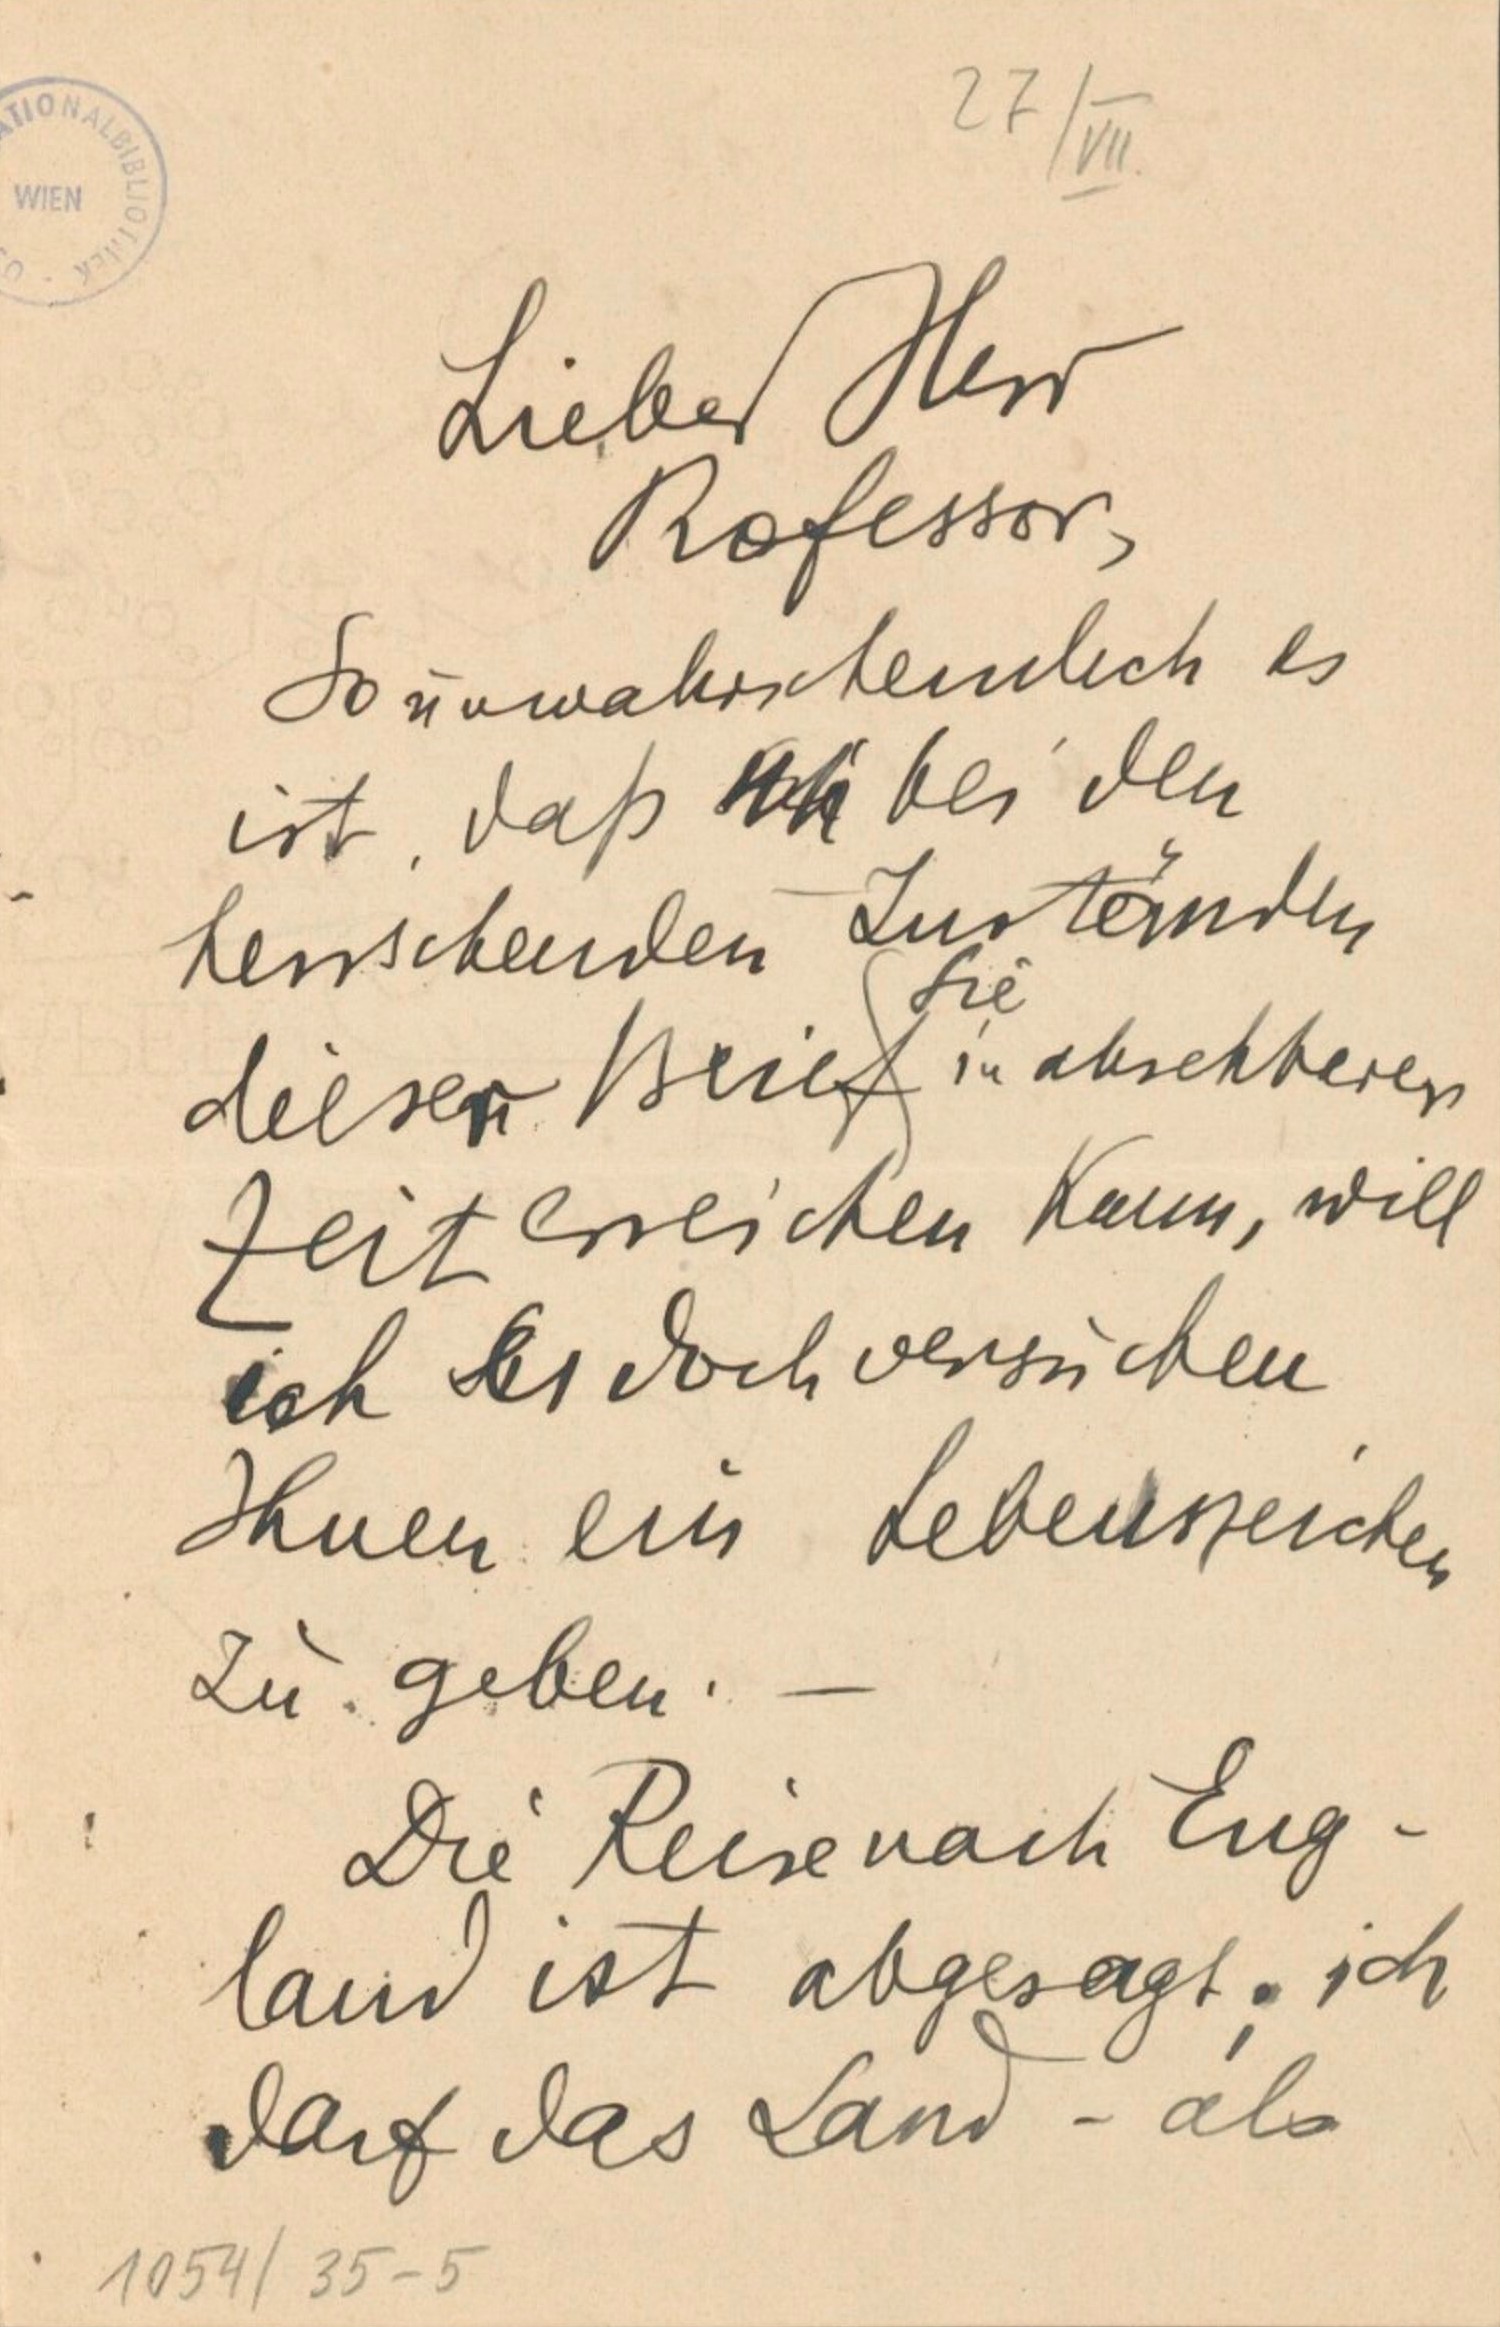 27/VII.
NATIONALBIBLIOTHEK
WIEN
Lieber Herr
Professor,
So unwahrscheinlich es
ist, daß bei den
herrschenden Zuständen
Sie
dieser Brief in absehbarer
Zeit erreichen kann, will
ich es doch versuchen
Ihnen ein Lebenszeichen
zu geben. —
Die Reise nach Eng-
land ist abgesagt; ich
darf das Land - als
1054/35-5